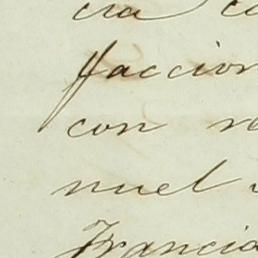 cia co
faccion
con re
nuel
Francia